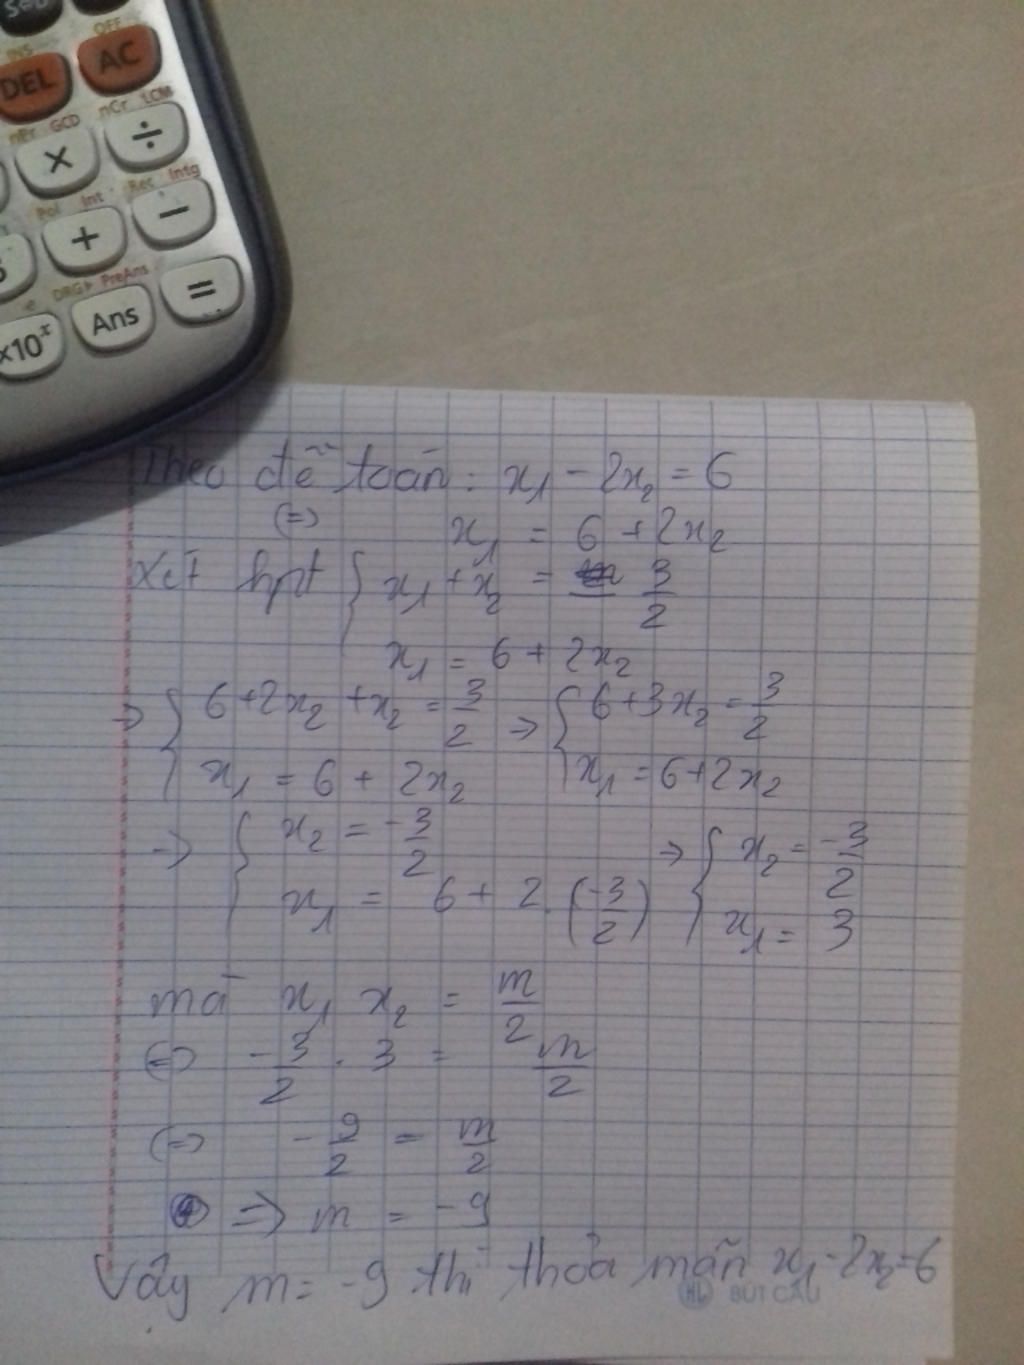 INS OFF
DEL AC
nPr GCD nCr LCM
× ÷
Pol Int Rec Intg
+ −
e DRG▸ PreAns
×10ˣ Ans =
Theo đề toán: x₁ - 2x₂ = 6
(=) x₁ = 6 + 2x₂
Xét hpt { x₁ + x₂ = 3/2
x₁ = 6 + 2x₂
→ { 6 + 2x₂ + x₂ = 3/2 → { 6 + 3x₂ = 3/2
x₁ = 6 + 2x₂ x₁ = 6 + 2x₂
→ { x₂ = -3/2 → { x₂ = -3/2
x₁ = 6 + 2.(-3/2) x₁ = 3
mà x₁ x₂ = m/2
(=) -3/2 . 3 = m/2
(=) -9/2 = m/2
=> m = -9
Vậy m = -9 thì thỏa mãn x₁ - 2x₂ = 6
BÚT CẦU